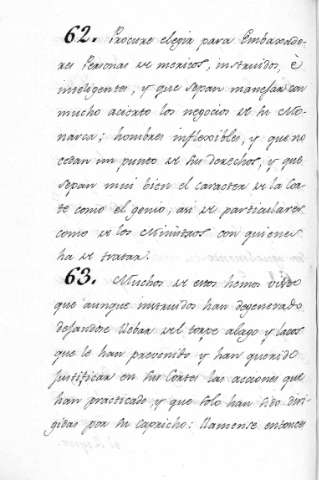 62. Procure elegir para Embaxado-
res Personas de meritos, instruidos, è
inteligentes, y que sepan manejar con
mucho acierto los negocios de su Mo-
narca; hombres inflexibles, y que no
cedan un punto de sus derechos, y que
sepan mui bien el caracter de la Cor-
te como el genio, asi de particulares
como de los Ministros con quienes
ha de tratar.
63. Muchos de estos hemos visto
que aunque instruidos han degenerado
dejandose llebar del torpe alago y lazos
que le han prevenido y han querido
justificar en sus Cortes las acciones que
han practicado, y que solo han sido diri-
gidas por su capricho: llamense entonces